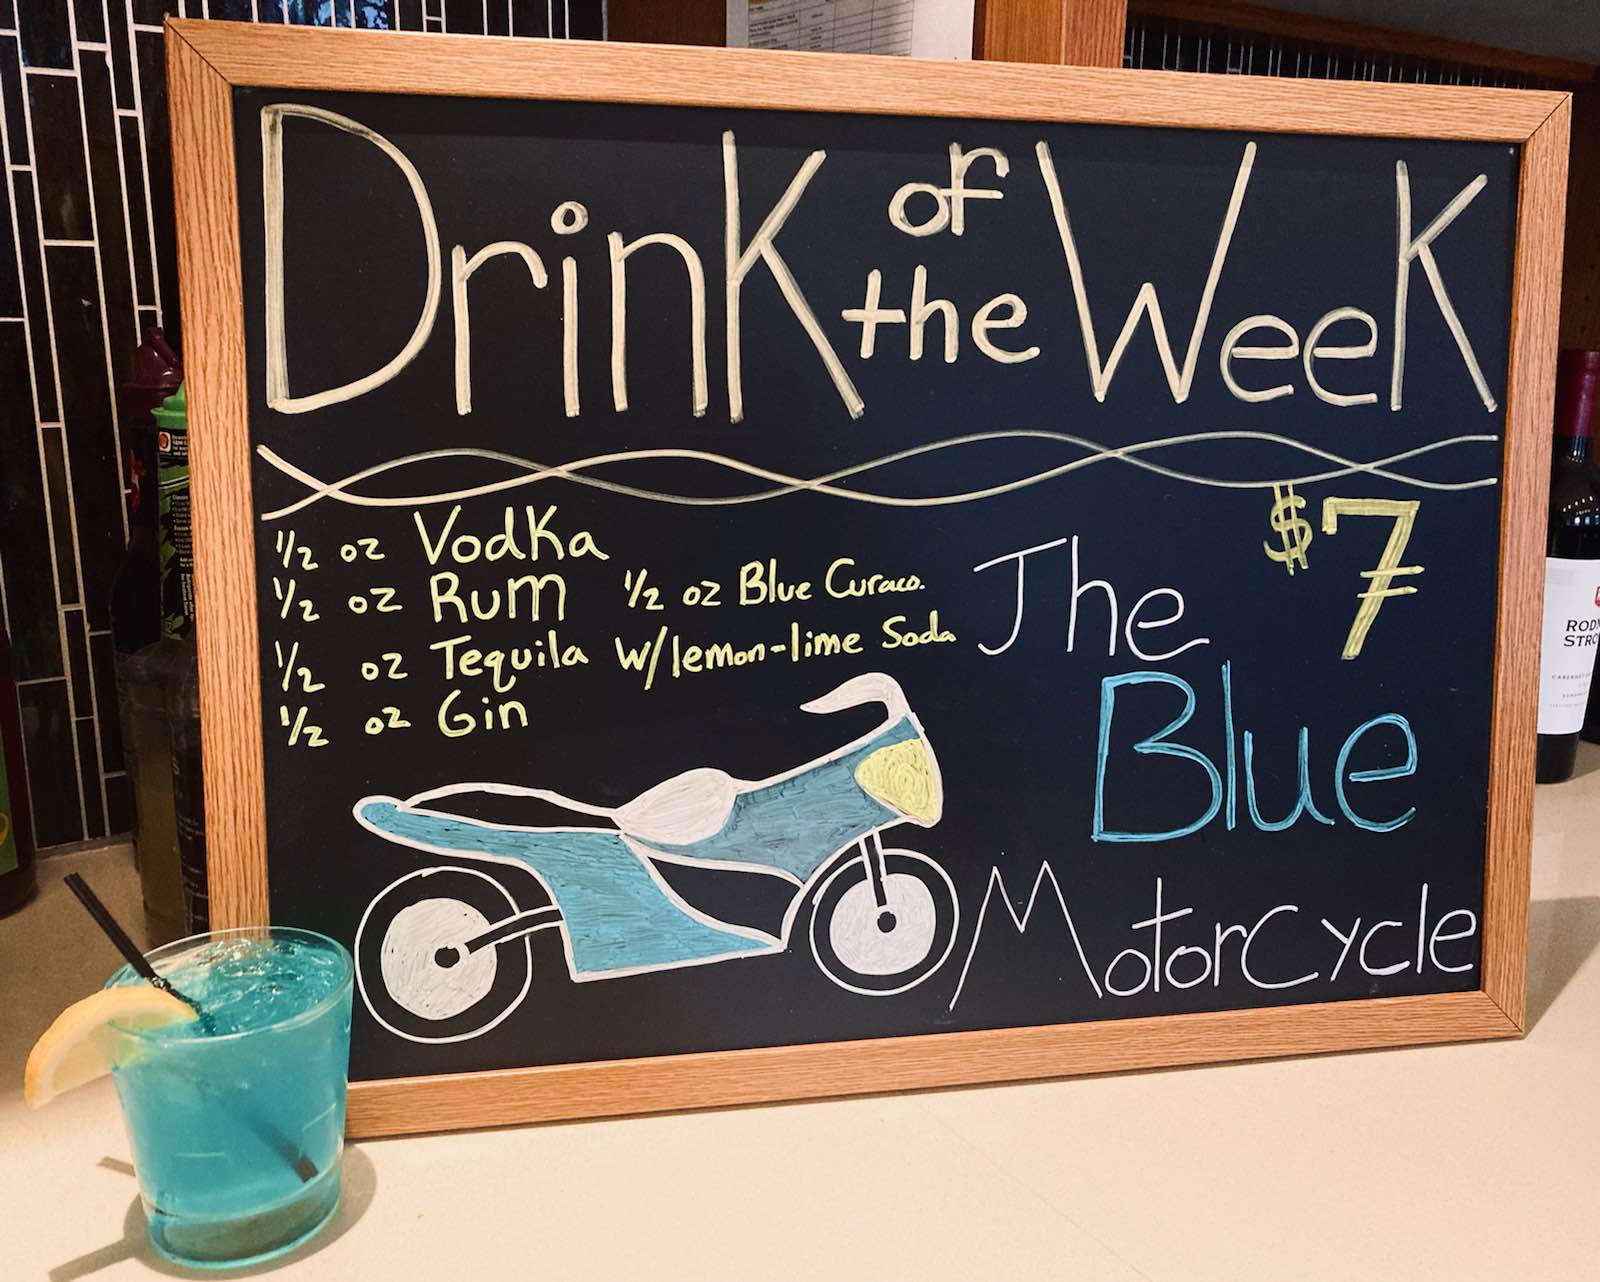 Drink of the Week
$7
½ oz Vodka
½ oz Rum
½ oz Tequila
½ oz Gin
½ oz Blue Curaco.
w/lemon-lime Soda
The
Blue
MotorCycle